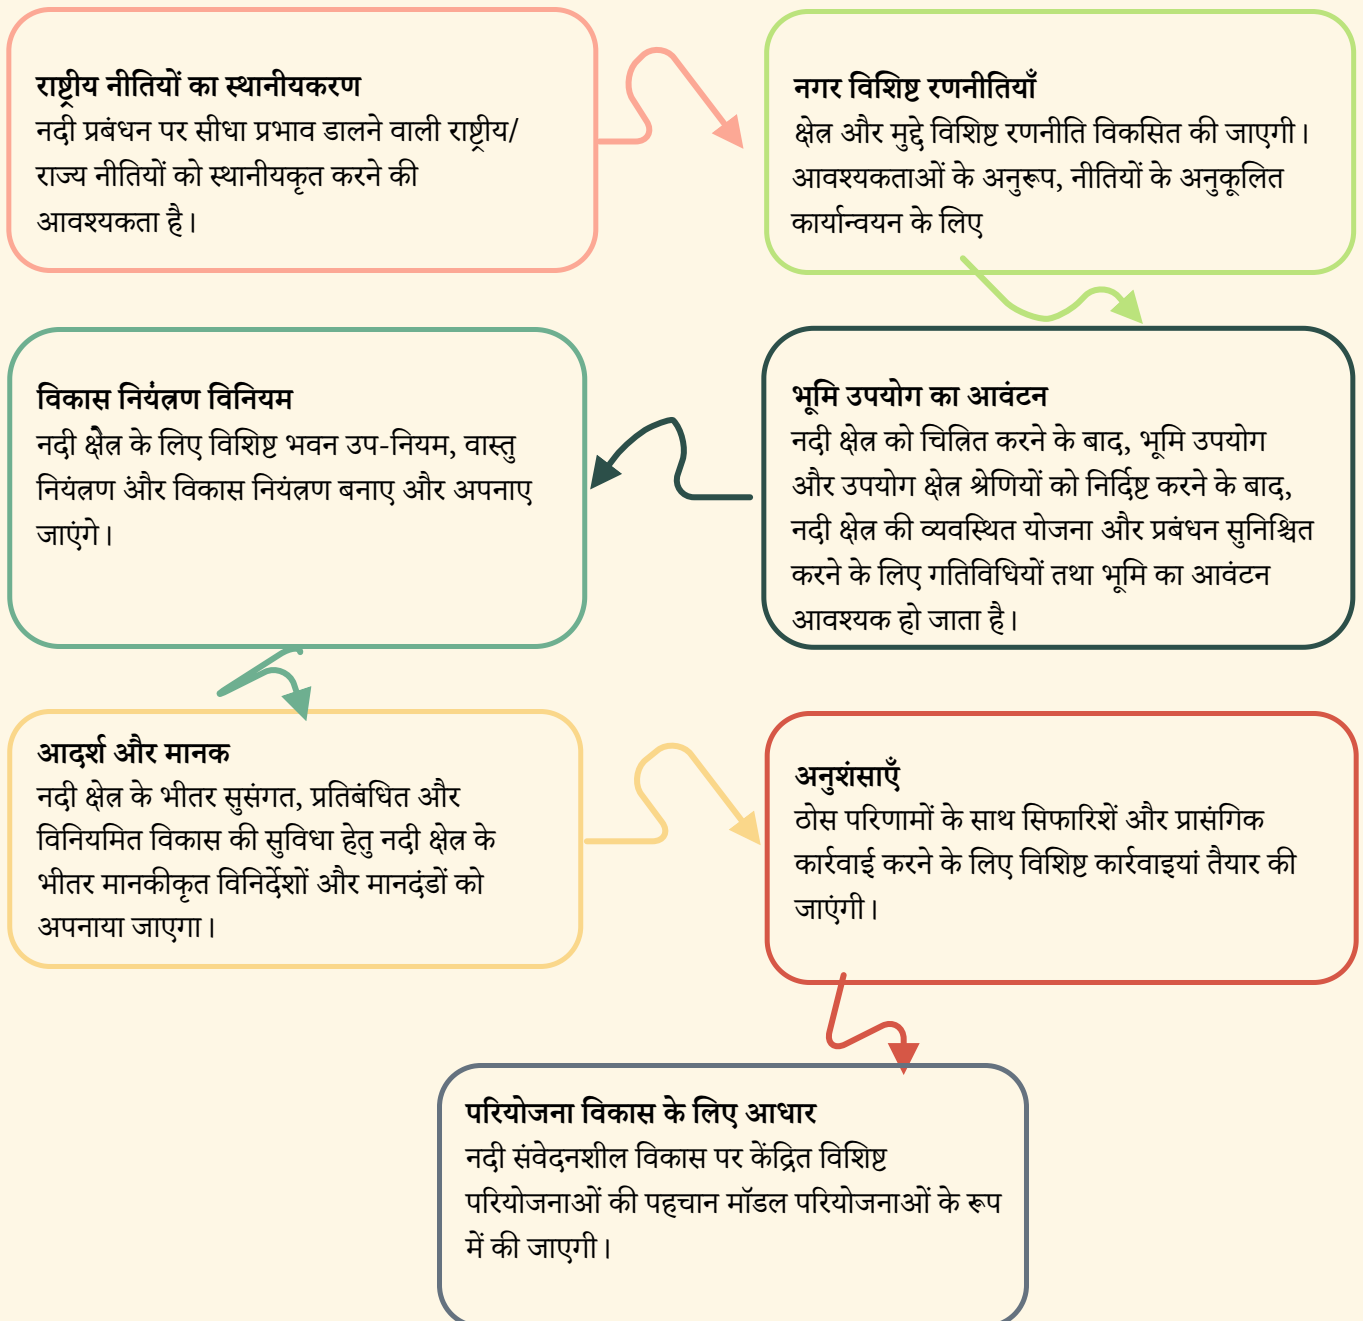 राष्ट्रीय नीतियों का स्थानीयकरण
नदी प्रबंधन पर सीधा प्रभाव डालने वाली राष्ट्रीय/
राज्य नीतियों को स्थानीयकृत करने की
आवश्यकता है।
नगर विशिष्ट रणनीतियाँ
क्षेत्र और मुद्दे विशिष्ट रणनीति विकसित की जाएगी।
आवश्यकताओं के अनुरूप, नीतियों के अनुकूलित
कार्यान्वयन के लिए
भूमि उपयोग का आवंटन
नदी क्षेत्र को चित्रित करने के बाद, भूमि उपयोग
और उपयोग क्षेत्र श्रेणियों को निर्दिष्ट करने के बाद,
नदी क्षेत्र की व्यवस्थित योजना और प्रबंधन सुनिश्चित
करने के लिए गतिविधियों तथा भूमि का आवंटन
आवश्यक हो जाता है।
विकास नियंत्रण विनियम
नदी क्षेत्र के लिए विशिष्ट भवन उप-नियम, वास्तु
नियंत्रण और विकास नियंत्रण बनाए और अपनाए
जाएंगे।
आदर्श और मानक
नदी क्षेत्र के भीतर सुसंगत, प्रतिबंधित और
विनियमित विकास की सुविधा हेतु नदी क्षेत्र के
भीतर मानकीकृत विनिर्देशों और मानदंडों को
अपनाया जाएगा।
अनुशंसाएँ
ठोस परिणामों के साथ सिफारिशें और प्रासंगिक
कार्रवाई करने के लिए विशिष्ट कार्रवाइयां तैयार की
जाएंगी।
परियोजना विकास के लिए आधार
नदी संवेदनशील विकास पर केंद्रित विशिष्ट
परियोजनाओं की पहचान मॉडल परियोजनाओं के रूप
में की जाएगी।